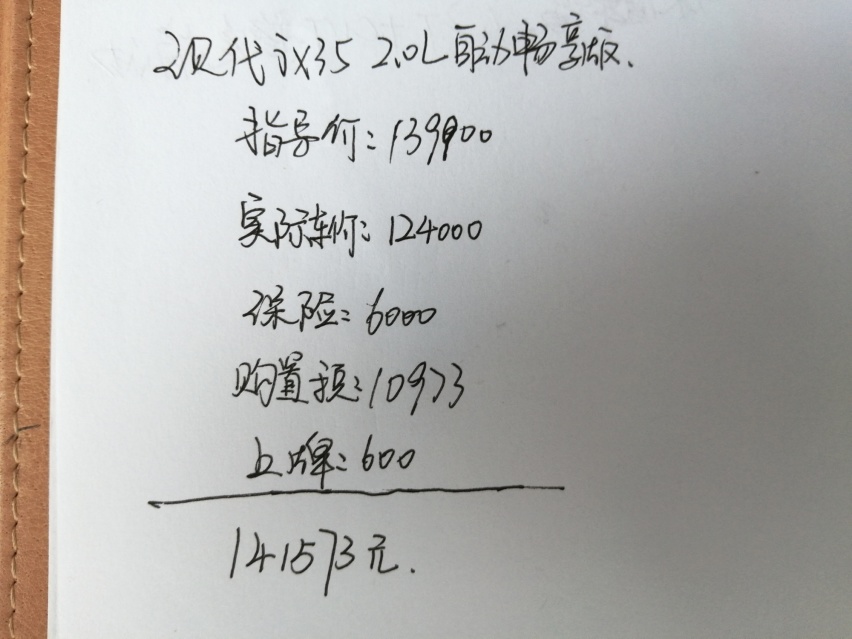 现代ix35 2.0L自动畅享版.
指导价:139900
实际车价:124000
保险:6000
购置税:10973
上牌:600
141573元.